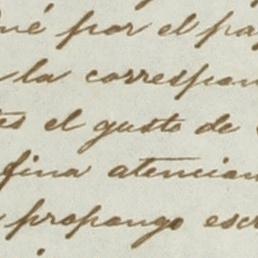 por el pa
la correspon
el gusto de
fina atencion
propongo escr